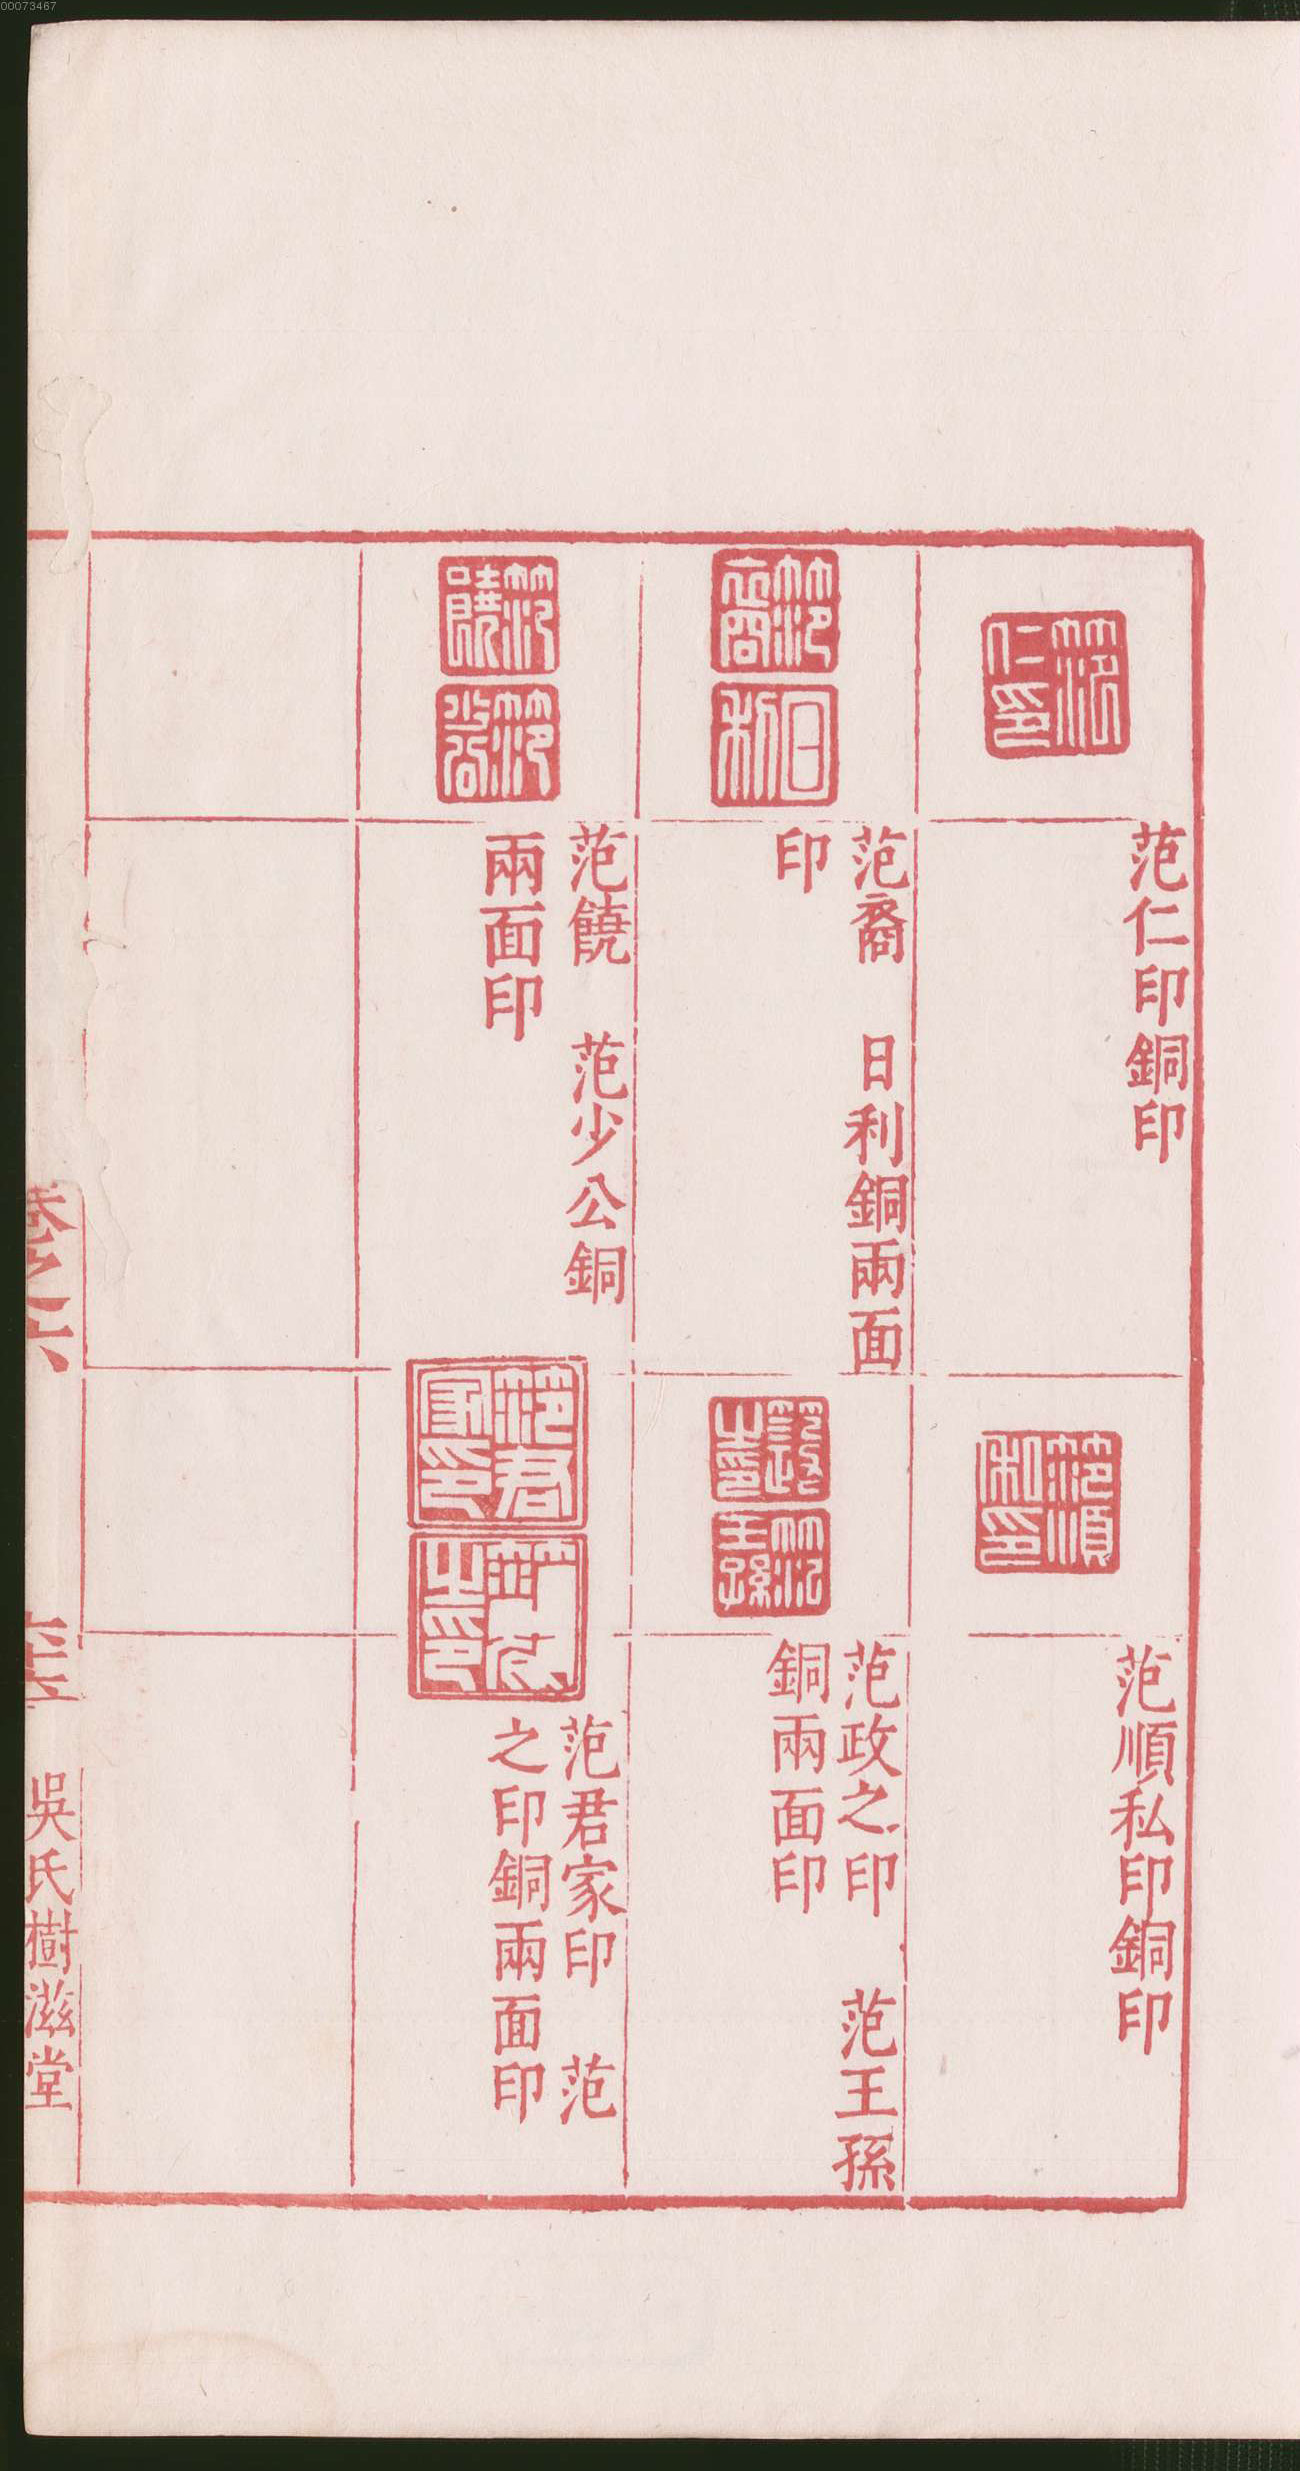 00073467
范仁印銅印
范順私印銅印
范裔　日利銅兩面
印
范政之印　范王孫
銅兩面印
范饒　范少公銅
兩面印
范君家印　范
之印銅兩面印
卷之六
吳氏樹滋堂